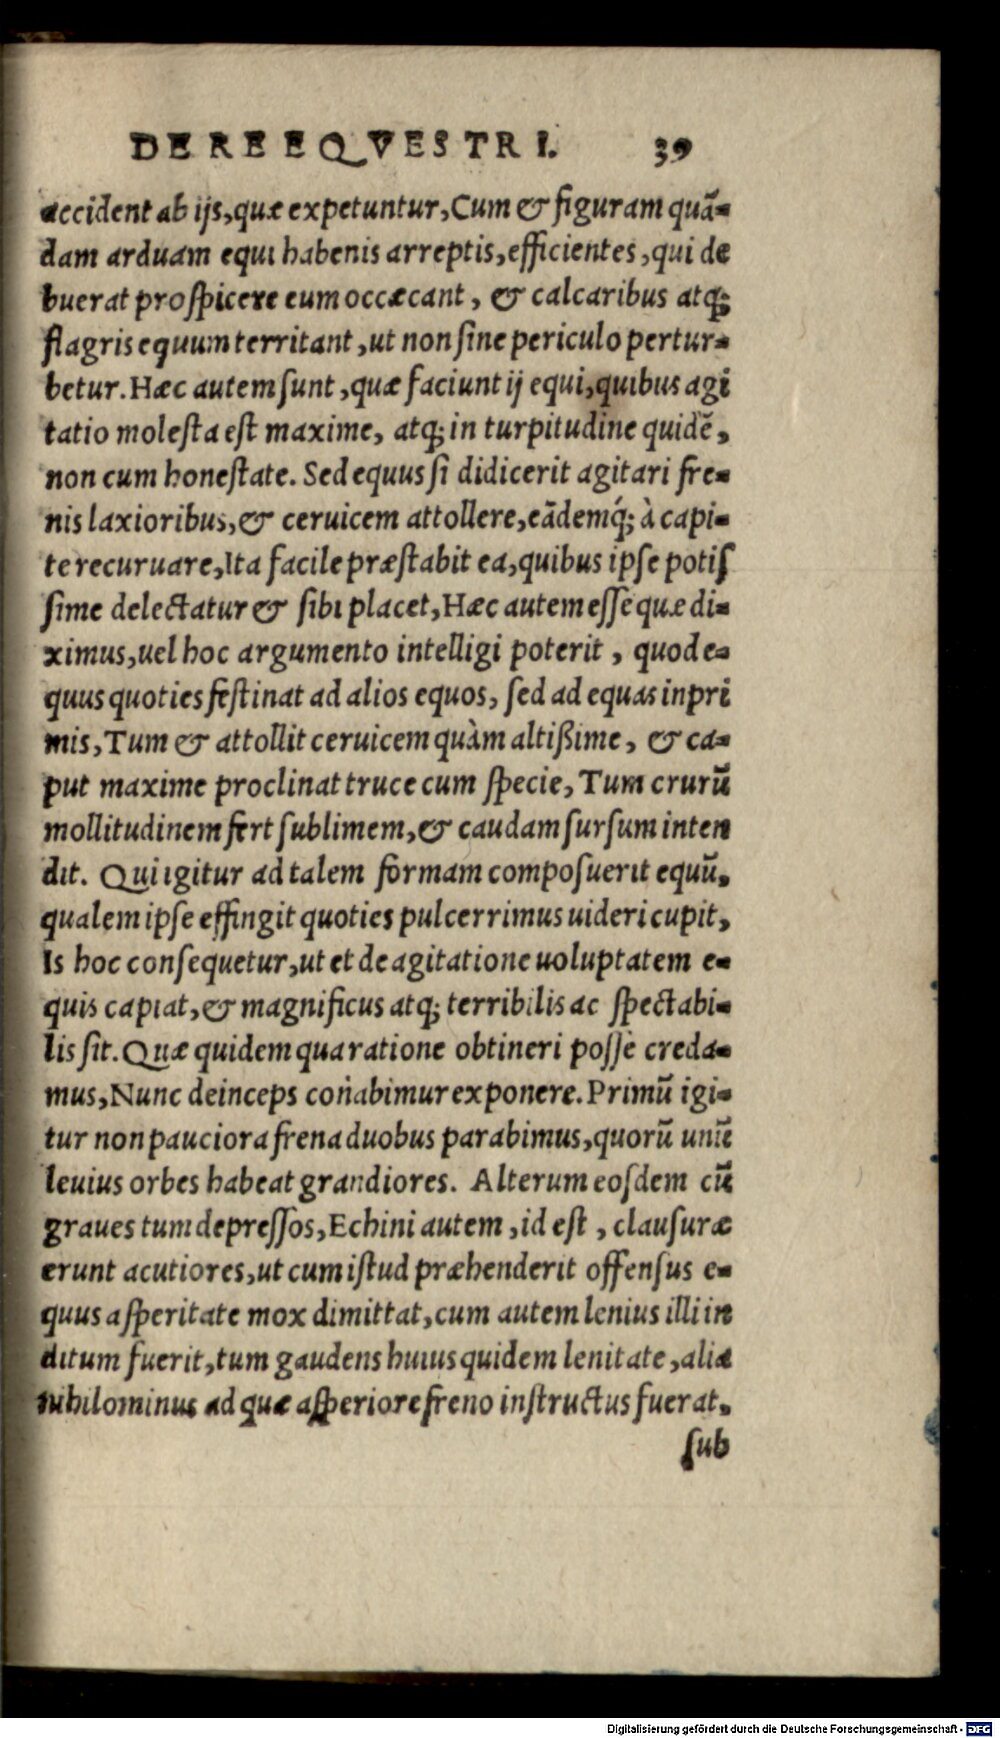 DE RE EQVESTRI. 39
accident ab ijs, quæ expetuntur, Cum & figuram quã-
dam arduam equi habenis arreptis, efficientes, qui de
buerat prospicere eum occæcant, & calcaribus atq;
flagris equum territant, ut non sine periculo pertur-
betur. Hæc autem sunt, quæ faciunt ij equi, quibus agi
tatio molesta est maxime, atq; in turpitudine quidẽ,
non cum honestate. Sed equus si didicerit agitari fre-
nis laxioribus, & ceruicem attollere, eãdemq́; à capi-
te recuruare, Ita facile præstabit ea, quibus ipse potis
sime delectatur & sibi placet, Hæc autem esse quæ di-
ximus, uel hoc argumento intelligi poterit, quod e-
quus quoties festinat ad alios equos, sed ad equas inpri
mis, Tum & attollit ceruicem quàm altißime, & ca-
put maxime proclinat truce cum specie, Tum crurũ
mollitudinem fert sublimem, & caudam sursum inten
dit. Qui igitur ad talem formam composuerit equũ,
qualem ipse effingit quoties pulcerrimus uideri cupit,
Is hoc consequetur, ut et de agitatione uoluptatem e-
quis capiat, & magnificus atq; terribilis ac spectabi-
lis sit. Quæ quidem qua ratione obtineri posse creda-
mus, Nunc deinceps conabimur exponere. Primũ igi-
tur non pauciora frena duobus parabimus, quorũ unũ
leuius orbes habeat grandiores. Alterum eosdem cũ
graues tum depressos, Echini autem, id est, clausuræ
erunt acutiores, ut cum istud præhenderit offensus e-
quus asperitate mox dimittat, cum autem lenius illi in
ditum fuerit, tum gaudens huius quidem lenitate, alia
nihilominus ad quæ asperiore freno instructus fuerat,
sub
Digitalisierung gefördert durch die Deutsche Forschungsgemeinschaft - DFG